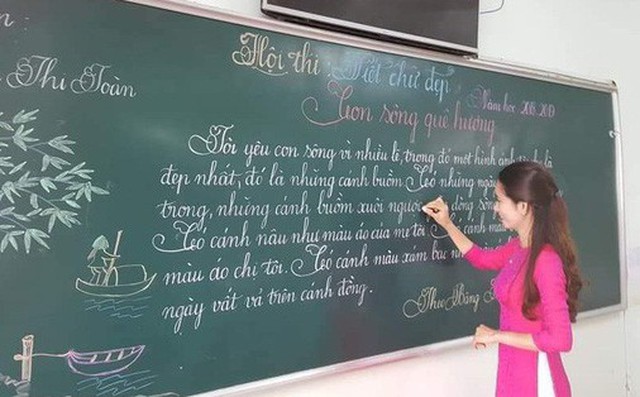 n :
Thi Toàn
Hội thi : Viết chữ đẹp
Năm học 2018-2019
Con sông quê hương
Tôi yêu con sông vì nhiều lẽ, trong đó một hình ảnh là
đẹp nhất, đó là những cánh buồm. Có những ngày
trong, những cánh buồm xuôi ngược dòng sông
Có cánh nâu như màu áo của mẹ tôi. Có cánh màu
màu áo chị tôi. Có cánh màu xám bạc
ngày vất vả trên cánh đồng.
Theo Băng